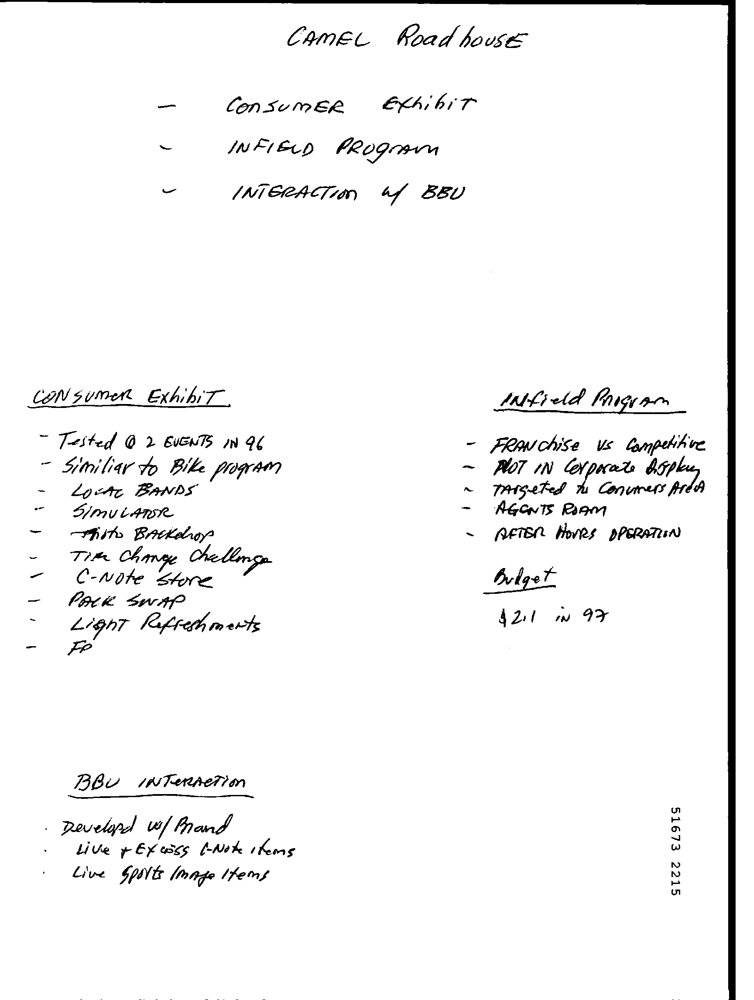 CAMEL Roadhouse
- Consumer Exhibit
- INFIELD PROgram
- INTERACTION w/ BBU
CONSumer Exhibit
- Tested @ 2 EVENTS IN 96
- Similiar to Bike program
- LOCAL BANDS
- SIMULATOR
- Backdrop
- Tire Change Challenge
- C-Note Store
- PACK SWAP
- Light Refreshments
- FP
INfield Program
- FRANchise vs Competitive
- NOT IN Corporate Display
- TARgeted to Conumers AreA
- AGENTS ROAM
- AFTER HOURS OPERATION
Budget
$2.1 in 97
BBU INTERACTION
· Developd w/ Brand
· Live + Excess C-Note items
· Live Sports Image Items
51673 2215